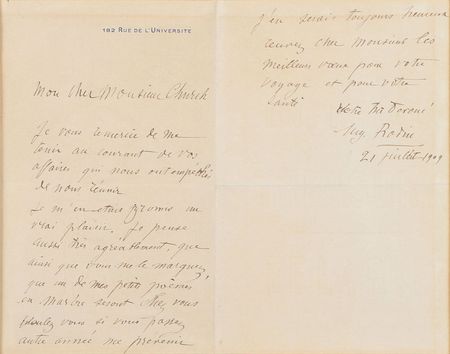 182 RUE DE L'UNIVERSITÉ
Mon cher Monsieur Church
Je vous remercie de me
tenir au courant de vos
affaires qui nous ont empêchés
de nous réunir
Je m'en étais promis un
vrai plaisir. Je pense
aussi très agréablement, que
ainsi que vous me le marquez
que un de mes petits poèmes
en marbre seront chez vous
voulez vous si vous passez
autre année me prévenir
J'en serais toujours heureux
recevez cher Monsieur les
meilleurs vœux pour votre
voyage et pour votre
santé
votre très dévoué
Aug Rodin
21 juillet 1909